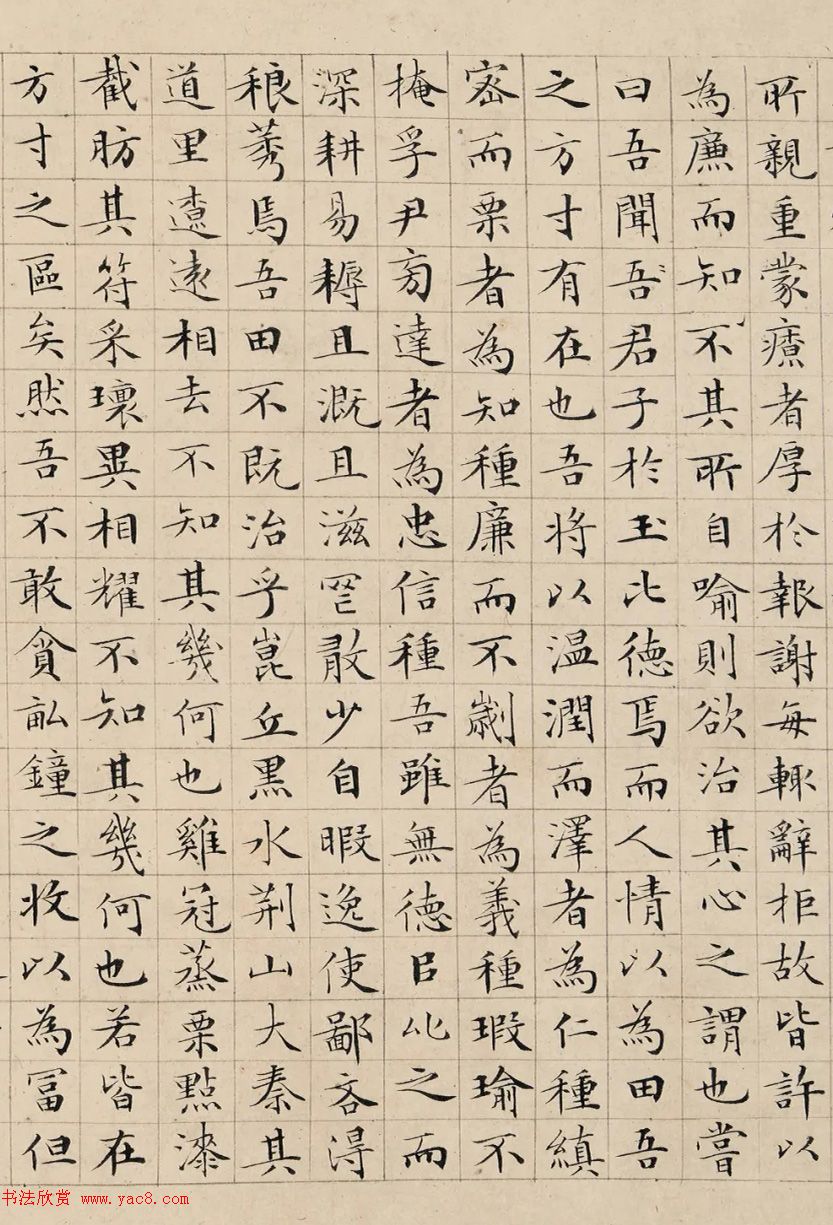 所親重蒙療者厚於報謝每輒辭拒故皆許以
為廉而知不其所自喻則欲治其心之謂也嘗
曰吾聞吾君子於玉比德焉而人情以為田吾
之方寸有在也吾將以温潤而澤者為仁種縝
宻而栗者為知種廉而不劌者為義種瑕瑜不
掩孚尹旁達者為忠信種吾雖無德㠯此之而
深耕易耨且溉且滋罔敢少自暇逸使鄙吝得
稂莠焉吾田不既治乎崑丘黑水荆山大秦其
道里遼遠相去不知其幾何也雞冠蒸栗點漆
截肪其符采瓌異相耀不知其幾何也若皆在
方寸之區矣然吾不敢貪畝鐘之收以為富但
书法欣赏 www.yac8.com